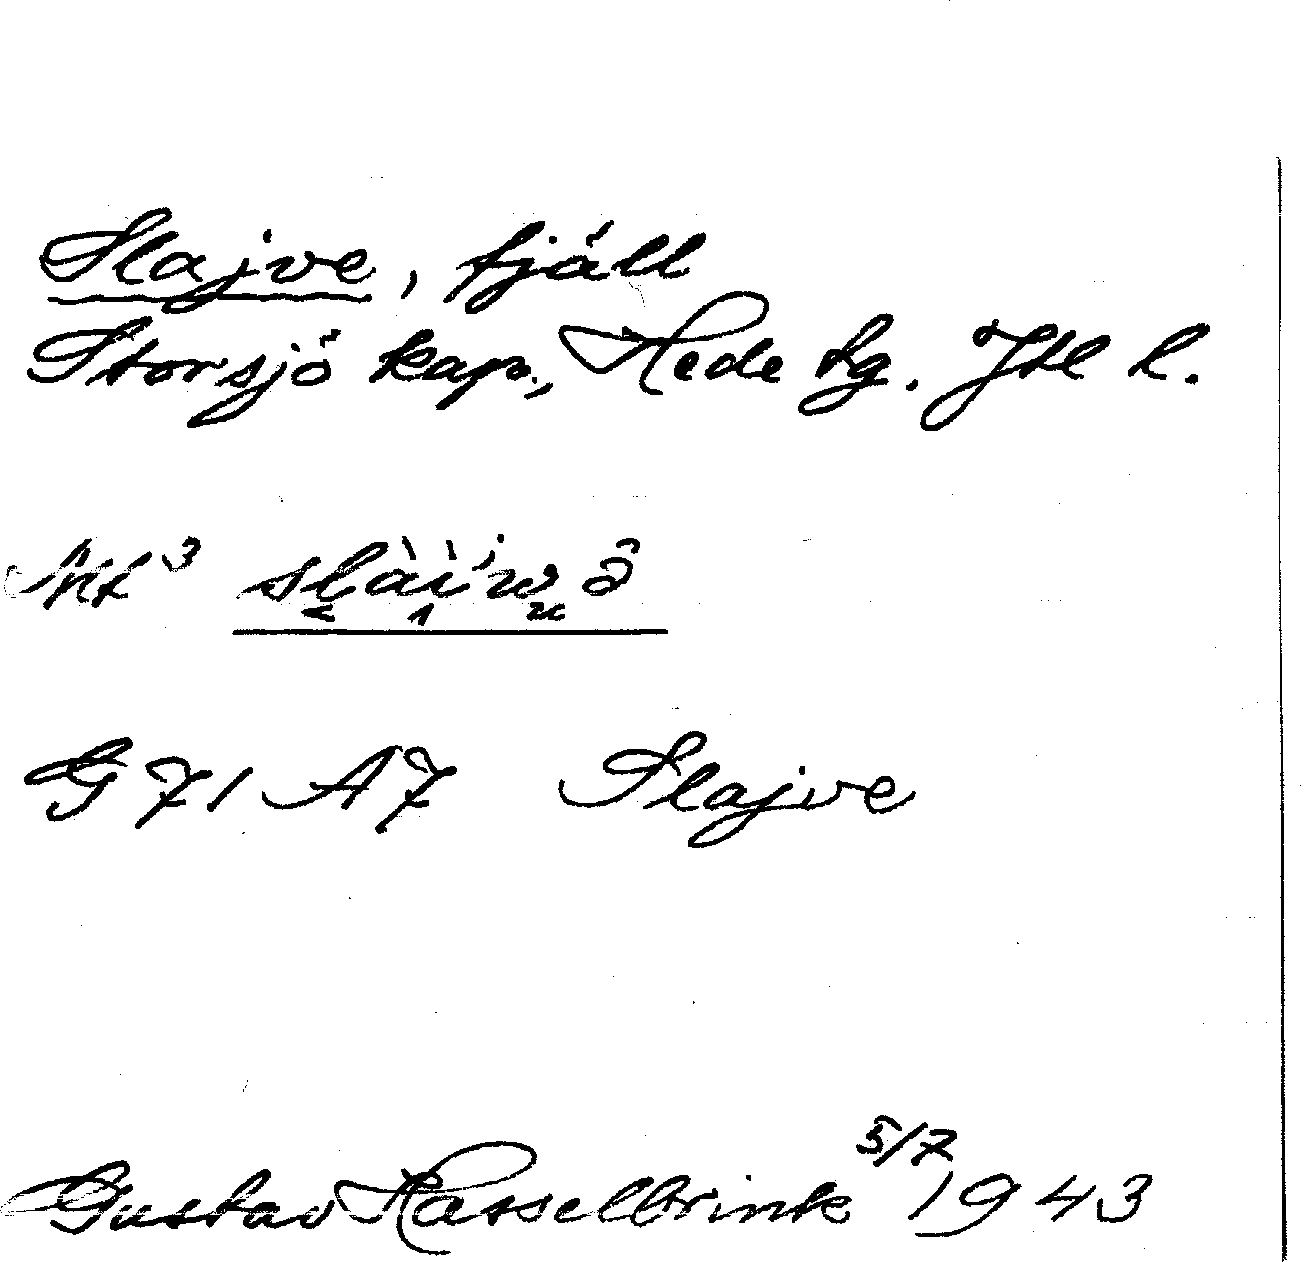 Slajve, fjäll
Storsjö kap., Hede tg. Jtl l.
G 71 A7 Slajve
Gustav Hasselbrink 5/7 1943